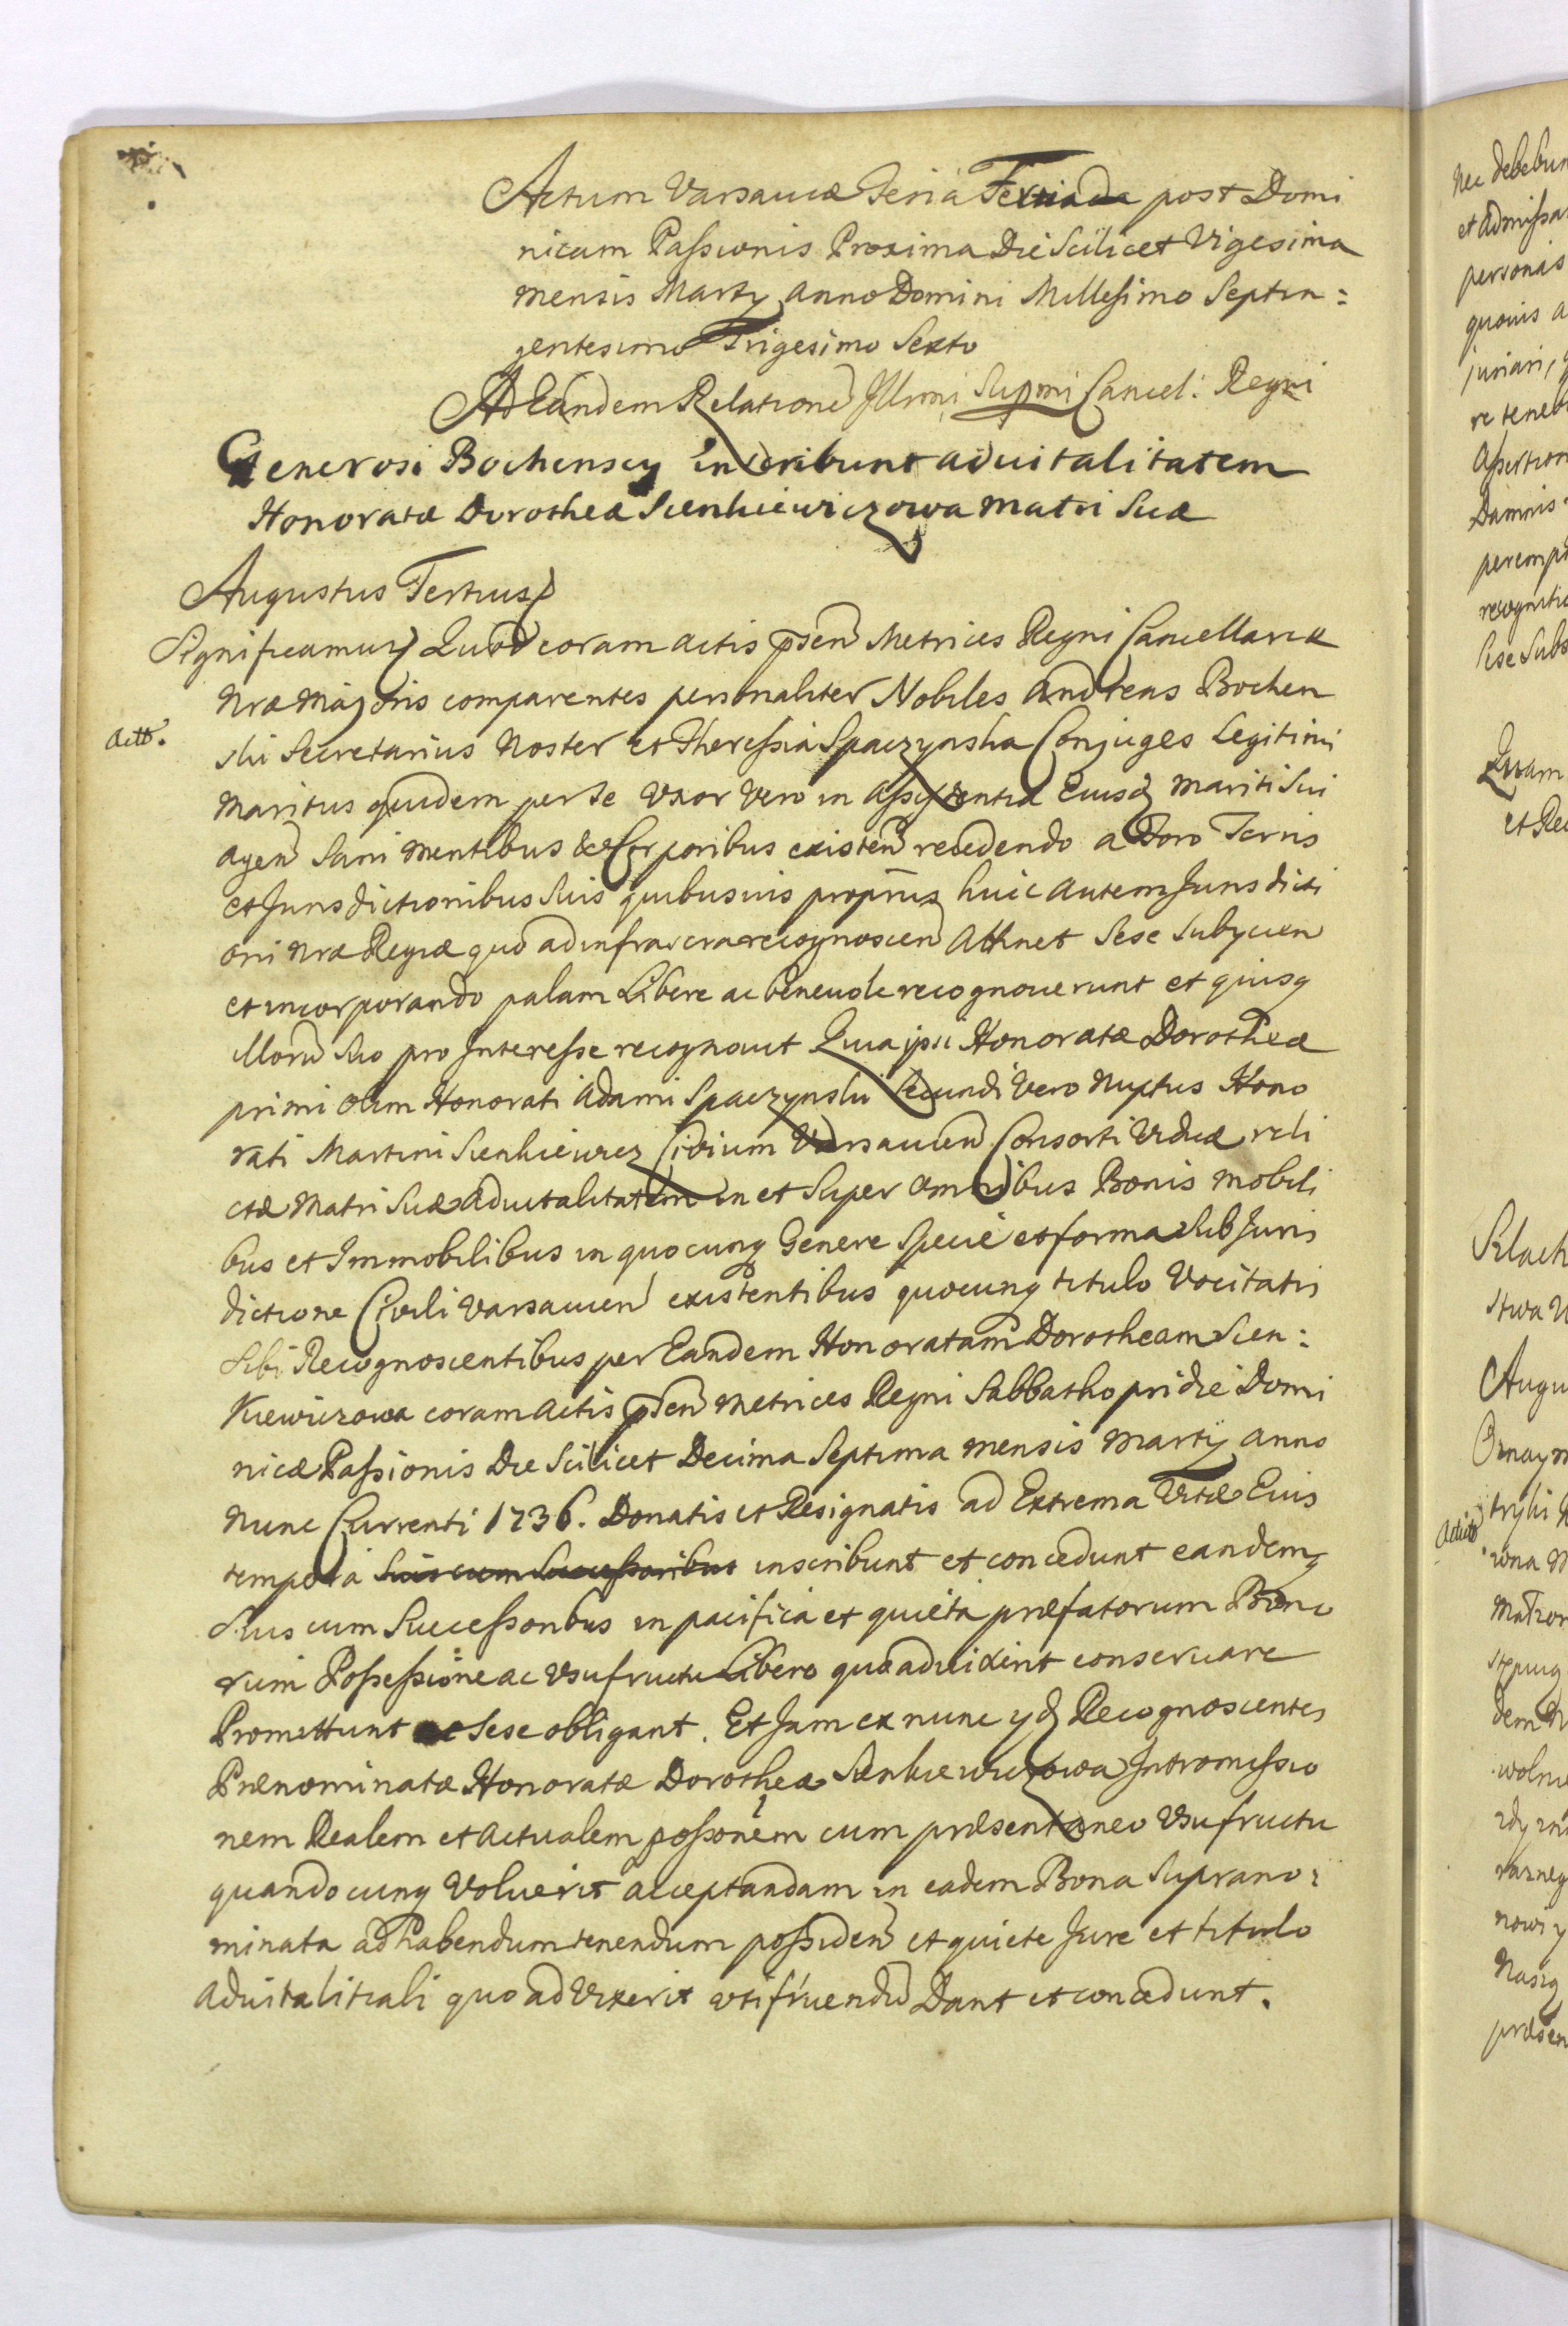 Actum Varsaviæ Feria Tertia post Domi
nicam Passionis Proxima Die Scilicet Vigesima
mensis Martij Anno Domini Millesimo Septin:
gentesimo Trigesimo Sexto
Ad Eandem Relationẽ Illmi Supmi Cancel: Regni
Generosi Bochenscy inscribunt aduitalitatem
Honoratæ Dorotheæ Sienkiewiczowa Matri Suæ
Augustus Tertius
Significamus Quod coram actis pseñ Metrices Regni Cancellariæ
Nræ Majoris comparentes personaliter Nobiles Andreas Bochen
Actb.
ski Secretarius Noster et Theressia Spaczynska Conjuges Legitimi
Maritus quidem per se Uxor Vero in Assistentia Eiusq mariti sui
ageñ Sani mentibus & Corporibus existeñ recedendo a Foro Terris
et Jurisdictionibus Suis quibusuis proprijs huic autem Jurisdicti
oni Nræ Regiæ quo ad infrascra recognosceñ Attinet Sese Subijcieñ
et incorporando palam Libere ac beneuole recognouerunt et quisq
illorũ suo pro Interesse recognouit Quia ipsi Honoratæ Dorotheæ
primi olim Honorati Adami Spaczynski Secundi Vero Nuptus Hono
rati Martini Sienkiewicz Ciuium Varsauieñ Consorti Viduæ reli
ctæ Matri Suæ aduitalitatem in et Super omnibus Bonis mobili
bus et Immobilibus in quocunq Genere Specie et forma Sub Juris
dictione Ciuili Varsauieñ existentibus quocunq titulo Vocitatis
Sibi Recognoscentibus per Eandem Honoratam Dorotheam Sien:
Kiewiczowa coram actis pseñ Metrices Regni Sabbatho pridie Domi
nicæ Passionis Die Scilicet Decima Septima mensis Martij anno
Nunc Currenti 1736. Donatis et Resignatis ad Extrema Vitæ Eius
tempora Suis cum Successoribus inscribunt et concedunt eandemq
Suis cum Successoribus in pacifica et quieta præfatorum Bono
rum Possessione ac Vsufructu Libero quo aduixerit conseruare
Promittunt ac Sese obligant. Et Jam ex nunc ijd Recognoscentes
Prænominatæ Honoratæ Dorotheæ Sienkiewiczowa Intromissio
nem Realem et Actualem possonem cum præsentaneo Vsufructu
quandocunq Voluerit acceptandam in eadem Bona Suprano:
minata ad habendum tenendum possideñ et quiete Jure et titulo
aduitalitiali quo ad Vixerit vtifruendũ Dant et concedunt.